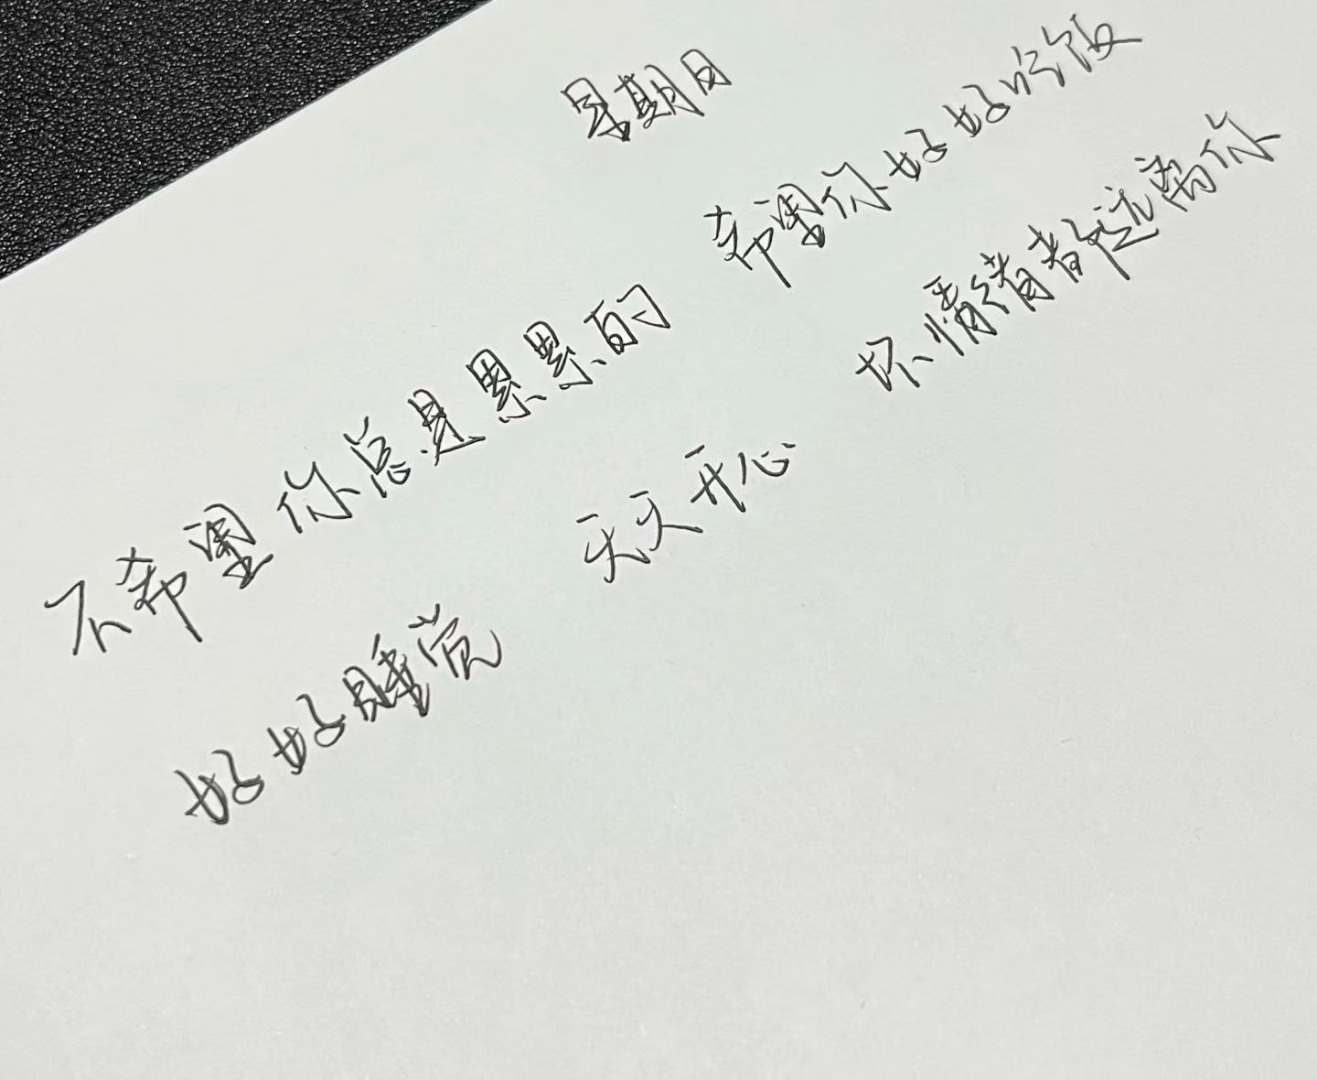 星期日
不希望你总是累累的 希望你好好吃饭
好好睡觉 天天开心 坏情绪都远离你